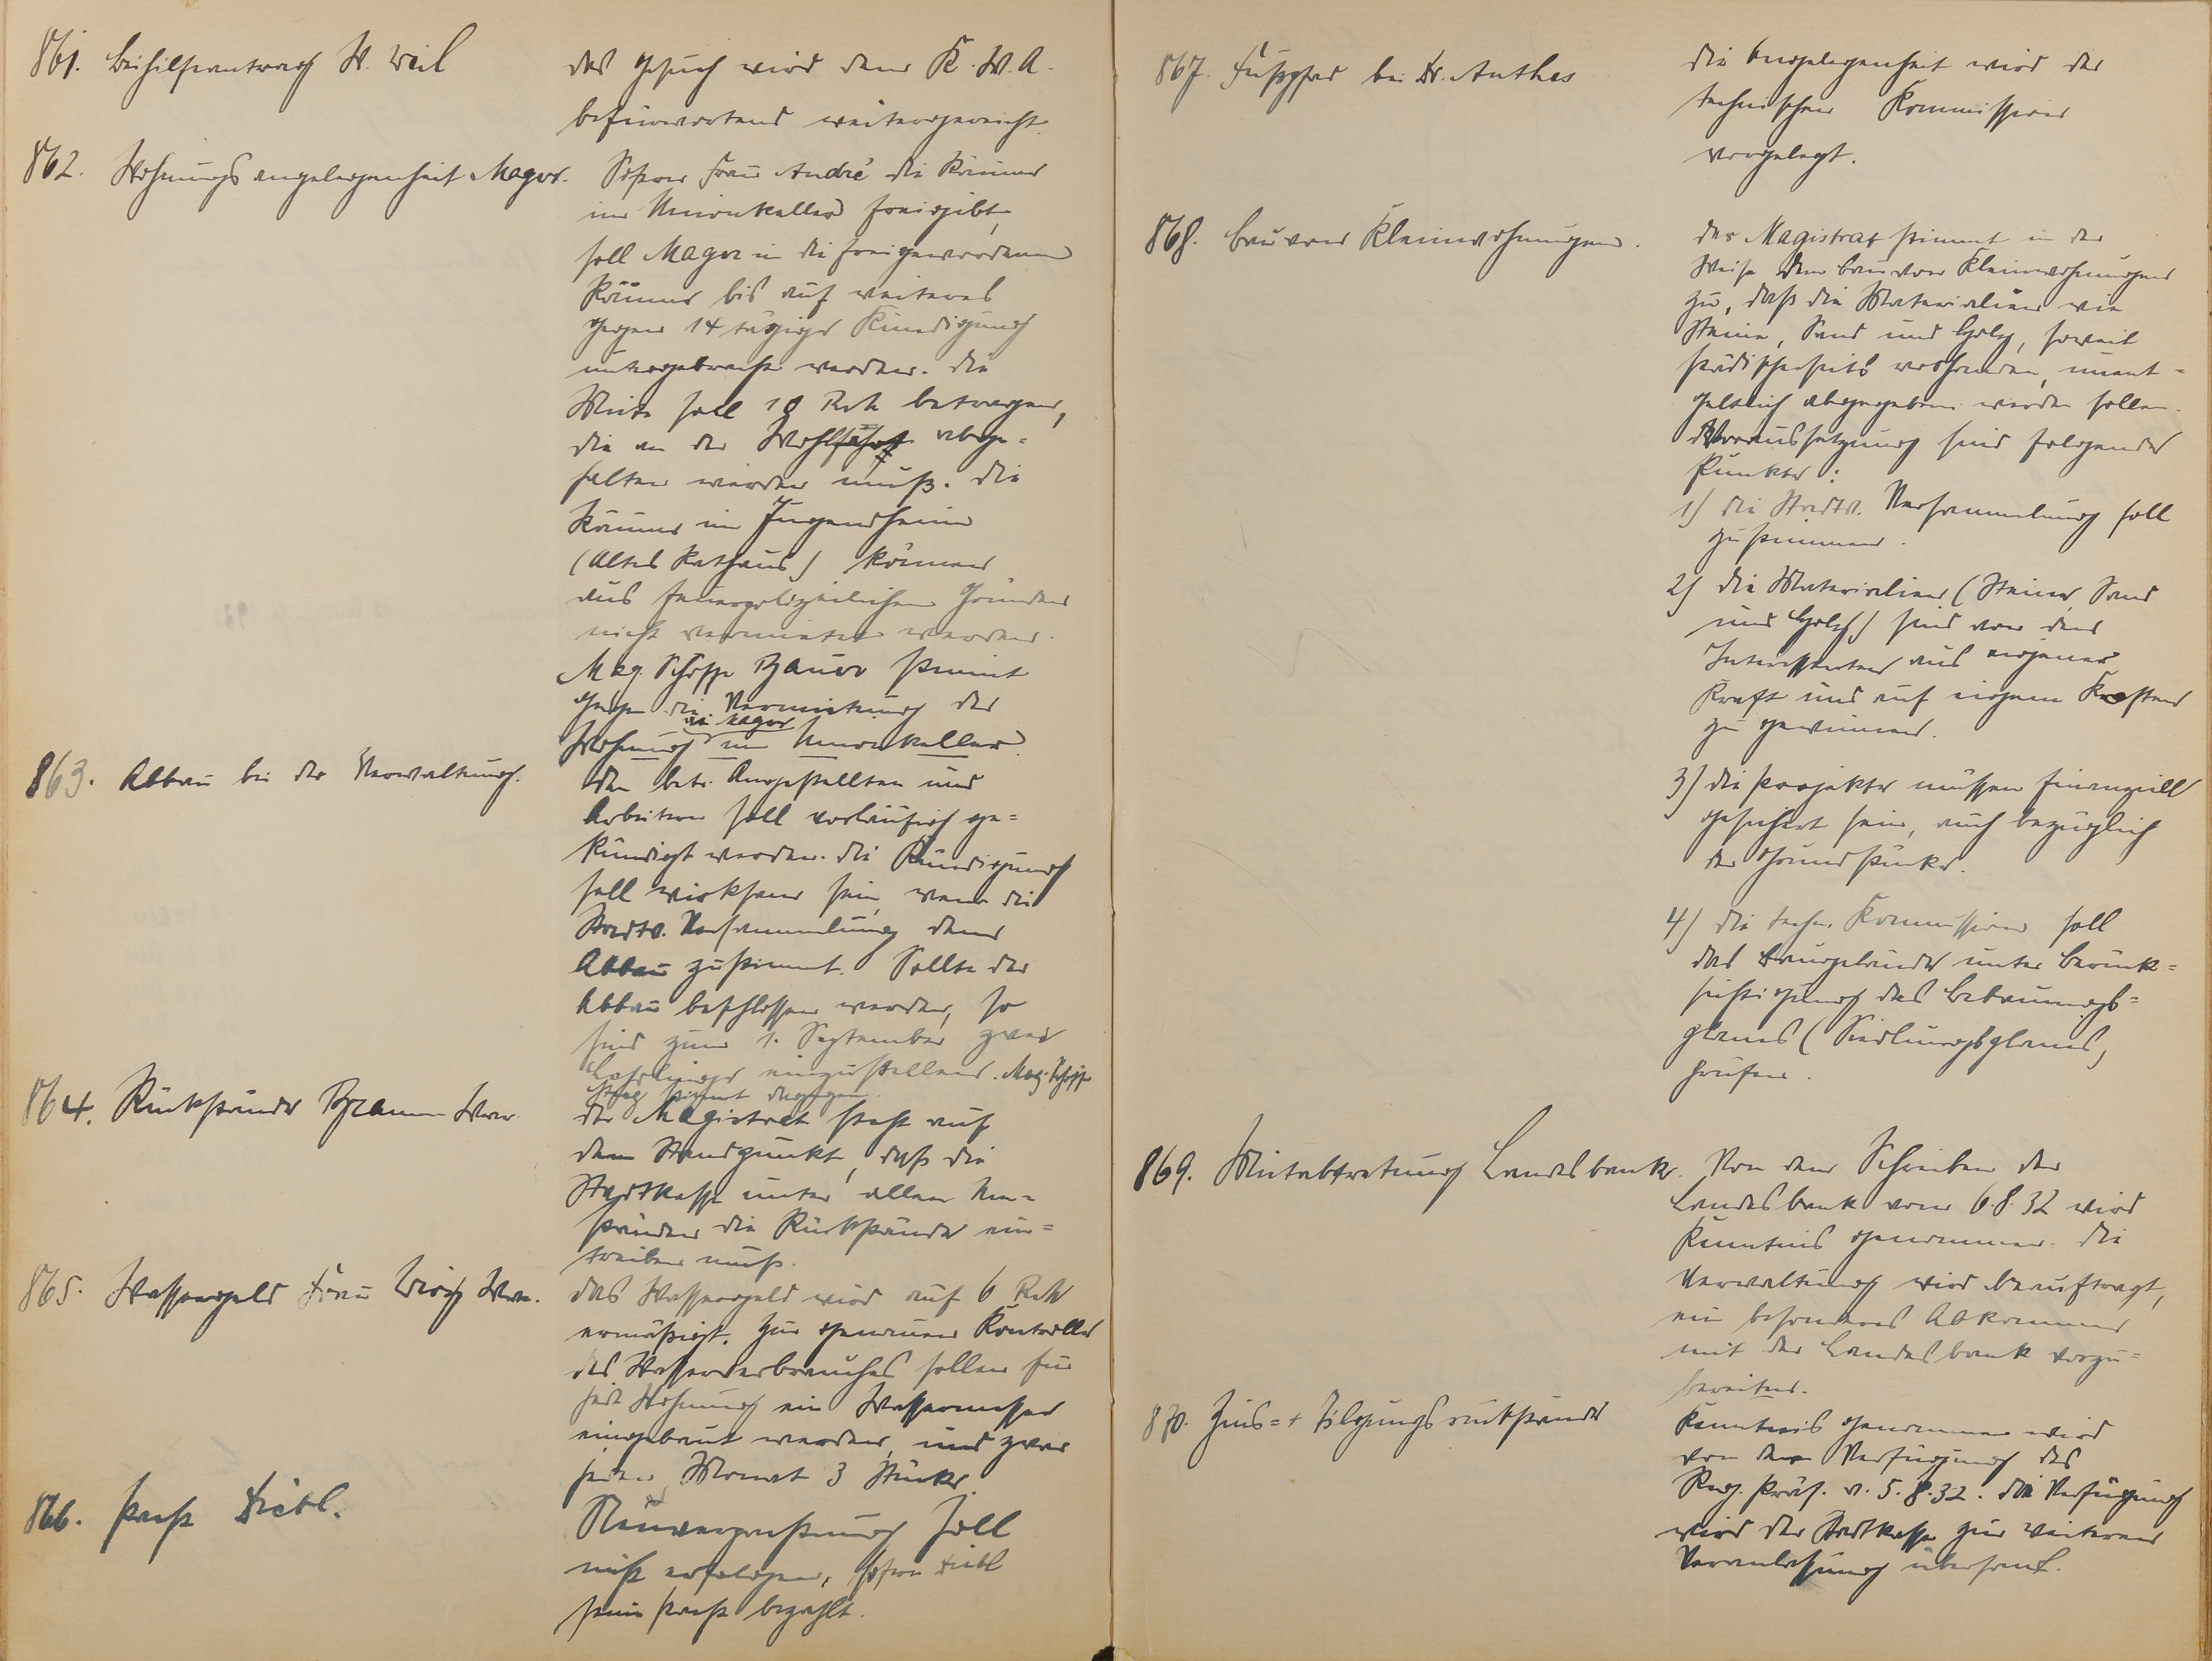 861. Beihilfeantrag W. Weil
das Gesuch wird dem K.W.A.
befürwortend weitergereicht.
862. Wohnungsangelegenheit Mager.
Sofern Frau André die Räume
im Unionkeller freigibt,
soll Mager in die freigewordenen
Räume bis auf weiteres
gegen 14 tägige Kündigung
untergebracht werden. die
Miete soll 10 RM betragen,
die an der Wohlfahrt abge=
halten werden muß. die
Räume im Jugendheim
(Altes Rathaus) können
aus feuerpolizeilichen Gründen
nicht vermietet werden.
Mag. Schöffe Bauer stimmt
gegen die Vermietung der
an Mager
Wohnung im Unionkeller.
863. Abbau bei der Verwaltung.
den betr. Angestellten und
Arbeitern soll vorläufig ge=
kündigt werden. die Kündigung
soll wirksam sein, wenn die
Stadtv. Versammlung dem
Abbau zustimmt. Sollte der
Abbau beschlossen werden, so
sind zum 1. September zwei
Lehrlinge einzustellen. Mag. Schöffe
stimmt dagegen.
864. Rückstände Braun Wwe.
der Magistrat steht auf
dem Standpunkt, daß die
Stadtkasse unter allen Um=
ständen die Rückstände ein=
treiben muß.
865. Wassergeld Frau Wwe.
das Wassergeld wird auf 6 RM
ermäßigt. Zur genauen Kontrolle
des Wasserverbrauches sollen für
jede Wohnung ein Wassermesser
eingebaut werden, und zwar
jeden Monat 3 Stück.
866. Pacht Diebl.
Neuverpachtung soll
nicht erfolgen, sofern Diebl
seine Pacht bezahlt.
867. Fußpfad bei Dr. Anthes
die Angelegenheit wird der
technischen Kommission
vorgelegt.
868. Bau von Kleinwohnungen.
der Magistrat stimmt in der
Weise dem Bau von Kleinwohnungen
zu, daß die Materialien wie
Steine, Sand und Holz, soweit
städtischerseits vorhanden, unent=
geltlich abgegeben werden sollen.
Voraussetzung sind folgende
Punkte:
1) die Stadtv. Versammlung soll
zustimmen.
2) die Materialien (Steine, Sand
und Holz) sind von den
Interessenten aus eigener
Kraft und auf eigene Kosten
zu gewinnen.
3) die Projekte müssen finanziell
gesichert sein, auch bezüglich
der Grundstücke.
4) die techn. Kommission soll
das Baugelände unter Berück=
sichtigung des Bebauungs=
planes (Siedlungsplanes)
prüfen.
869. Mietabtretung Landesbank.
Von dem Schreiben der
Landesbank vom 6.8.32 wird
Kenntnis genommen. die
Verwaltung wird beauftragt,
ein besonderes Abkommen
mit der Landesbank vorzu=
bereiten.
870. Zins= + Tilgungsrückstände
Kenntnis genommen wird
von der Verfügung des
Reg. Präs. v. 5.8.32. die Verfügung
wird der Stadtkasse zur weiteren
Veranlassung übersandt.